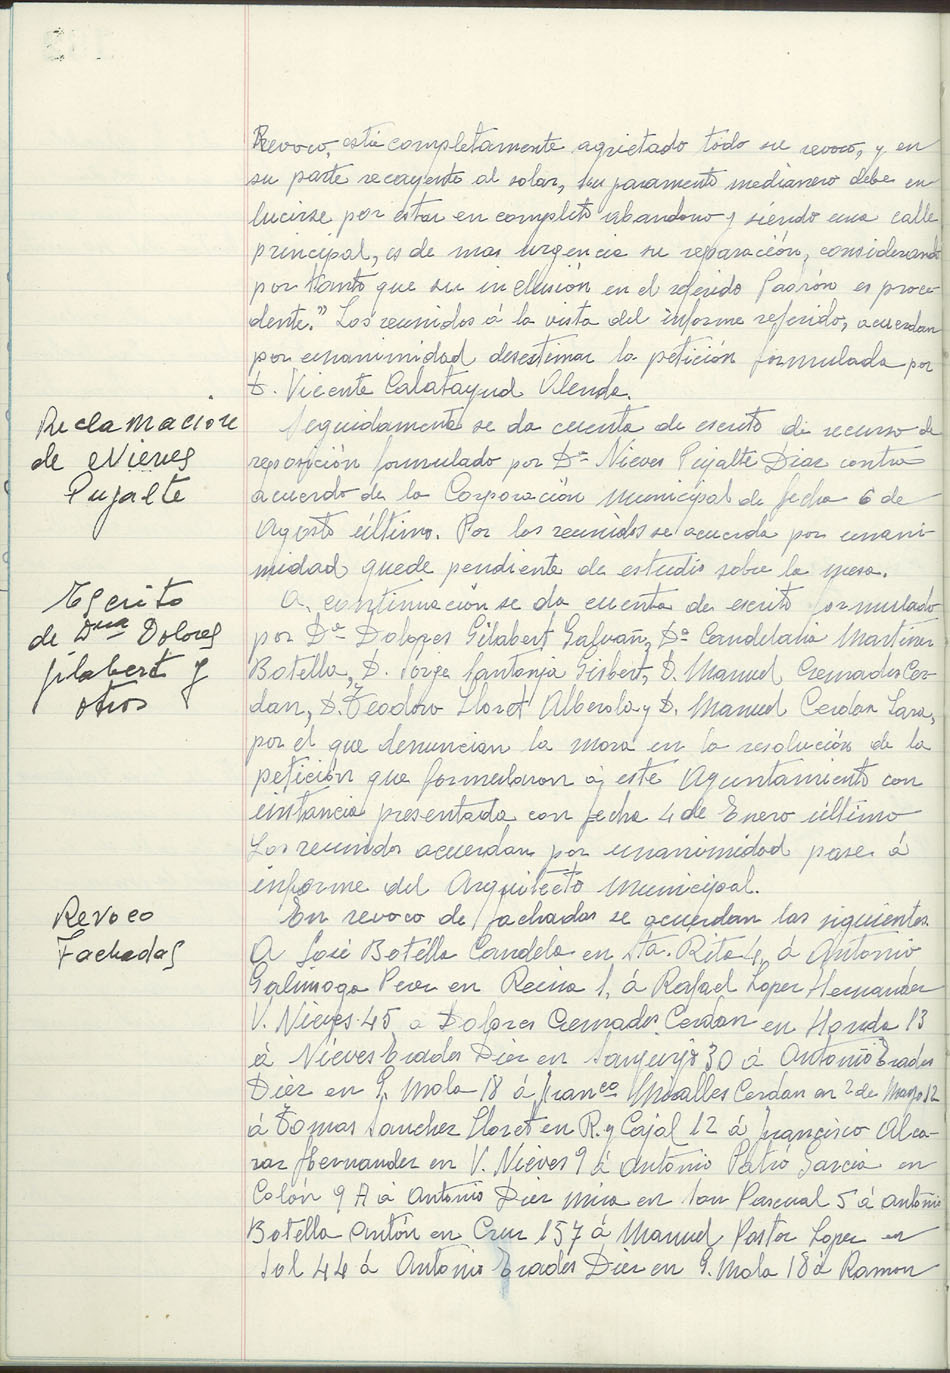 Revoco, está completamente agrietado todo su revoco, y en
su parte recayente al solar, su paramento medianero debe en
lucirse por estar en completo abandono y siendo una calle
principal, es de mas urgencia su reparación, considerando
por tanto que su inclusión en el referido Padrón es proce-
dente." Los reunidos á la vista del informe referido, acuerdan
por unanimidad desestimar la petición formulada por
D. Vicente Calatayud Alenda.
Reclamacione
de Nieves
Pujalte
Seguidamente se da cuenta de escrito de recurso de
reposición formulado por Dª Nieves Pujalte Diaz contra
acuerdo de la Corporación Municipal de fecha 6 de
Agosto último. Por los reunidos se acuerda por unani-
midad quede pendiente de estudio sobre la mesa.
Escrito
de Dña Dolores
Gilabert y
otros
A continuación se da cuenta de escrito formulado
por Dª Dolores Gilabert Galvañ, Dª Candelaria Martinez
Botella, D. Jorge Santonja Gisbert, D. Manuel Cremades Cer-
dan, D. Teodoro Lloret Alberola y D. Manuel Cerdan Lara,
por el que denuncian la mora en la resolución de la
petición que formularon á este Ayuntamiento con
instancia presentada con fecha 4 de Enero último
Los reunidos acuerdan por unanimidad pase á
informe del Arquitecto Municipal.
Revoco
Fachadas
En revoco de fachadas se acuerdan las siguientes
A José Botella Candela en Sta. Rita 4, á Antonio
Galinsoga Perez en Reina 1, á Rafael Lopez Hernandez
V. Nieves 45 a Dolores Cremades Cerdan en Honda 13
á Nieves Erades Diez en Sanjurjo 30 á Antonio Erades
Diez en G. Mola 18 á Franco Miralles Cerdan en 2 de Mayo 12
á Tomas Sanchez Lloret en R. y Cajal 12 á Francisco Alca-
raz Hernandez en V. Nieves 9 á Antonio Patró Garcia en
Colón 9 A á Antonio Diez Mira en San Pascual 5 á Antonio
Botella Antón en Cruz 157 á Manuel Pastor Lopez en
Sol 44 á Antonio Erades Diez en G. Mola 18 á Ramon